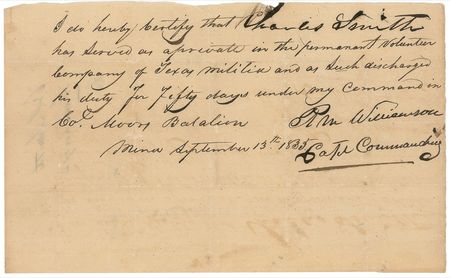 I do hereby Certify that Charles Smith
has served as a private in the permanant Volunteer
Company of Texas militia and as such discharged
his duty for Fifty days under my Command in
Col. Moors Batalion R M Williamson
Mina September 13th 1835 Capt Commanding